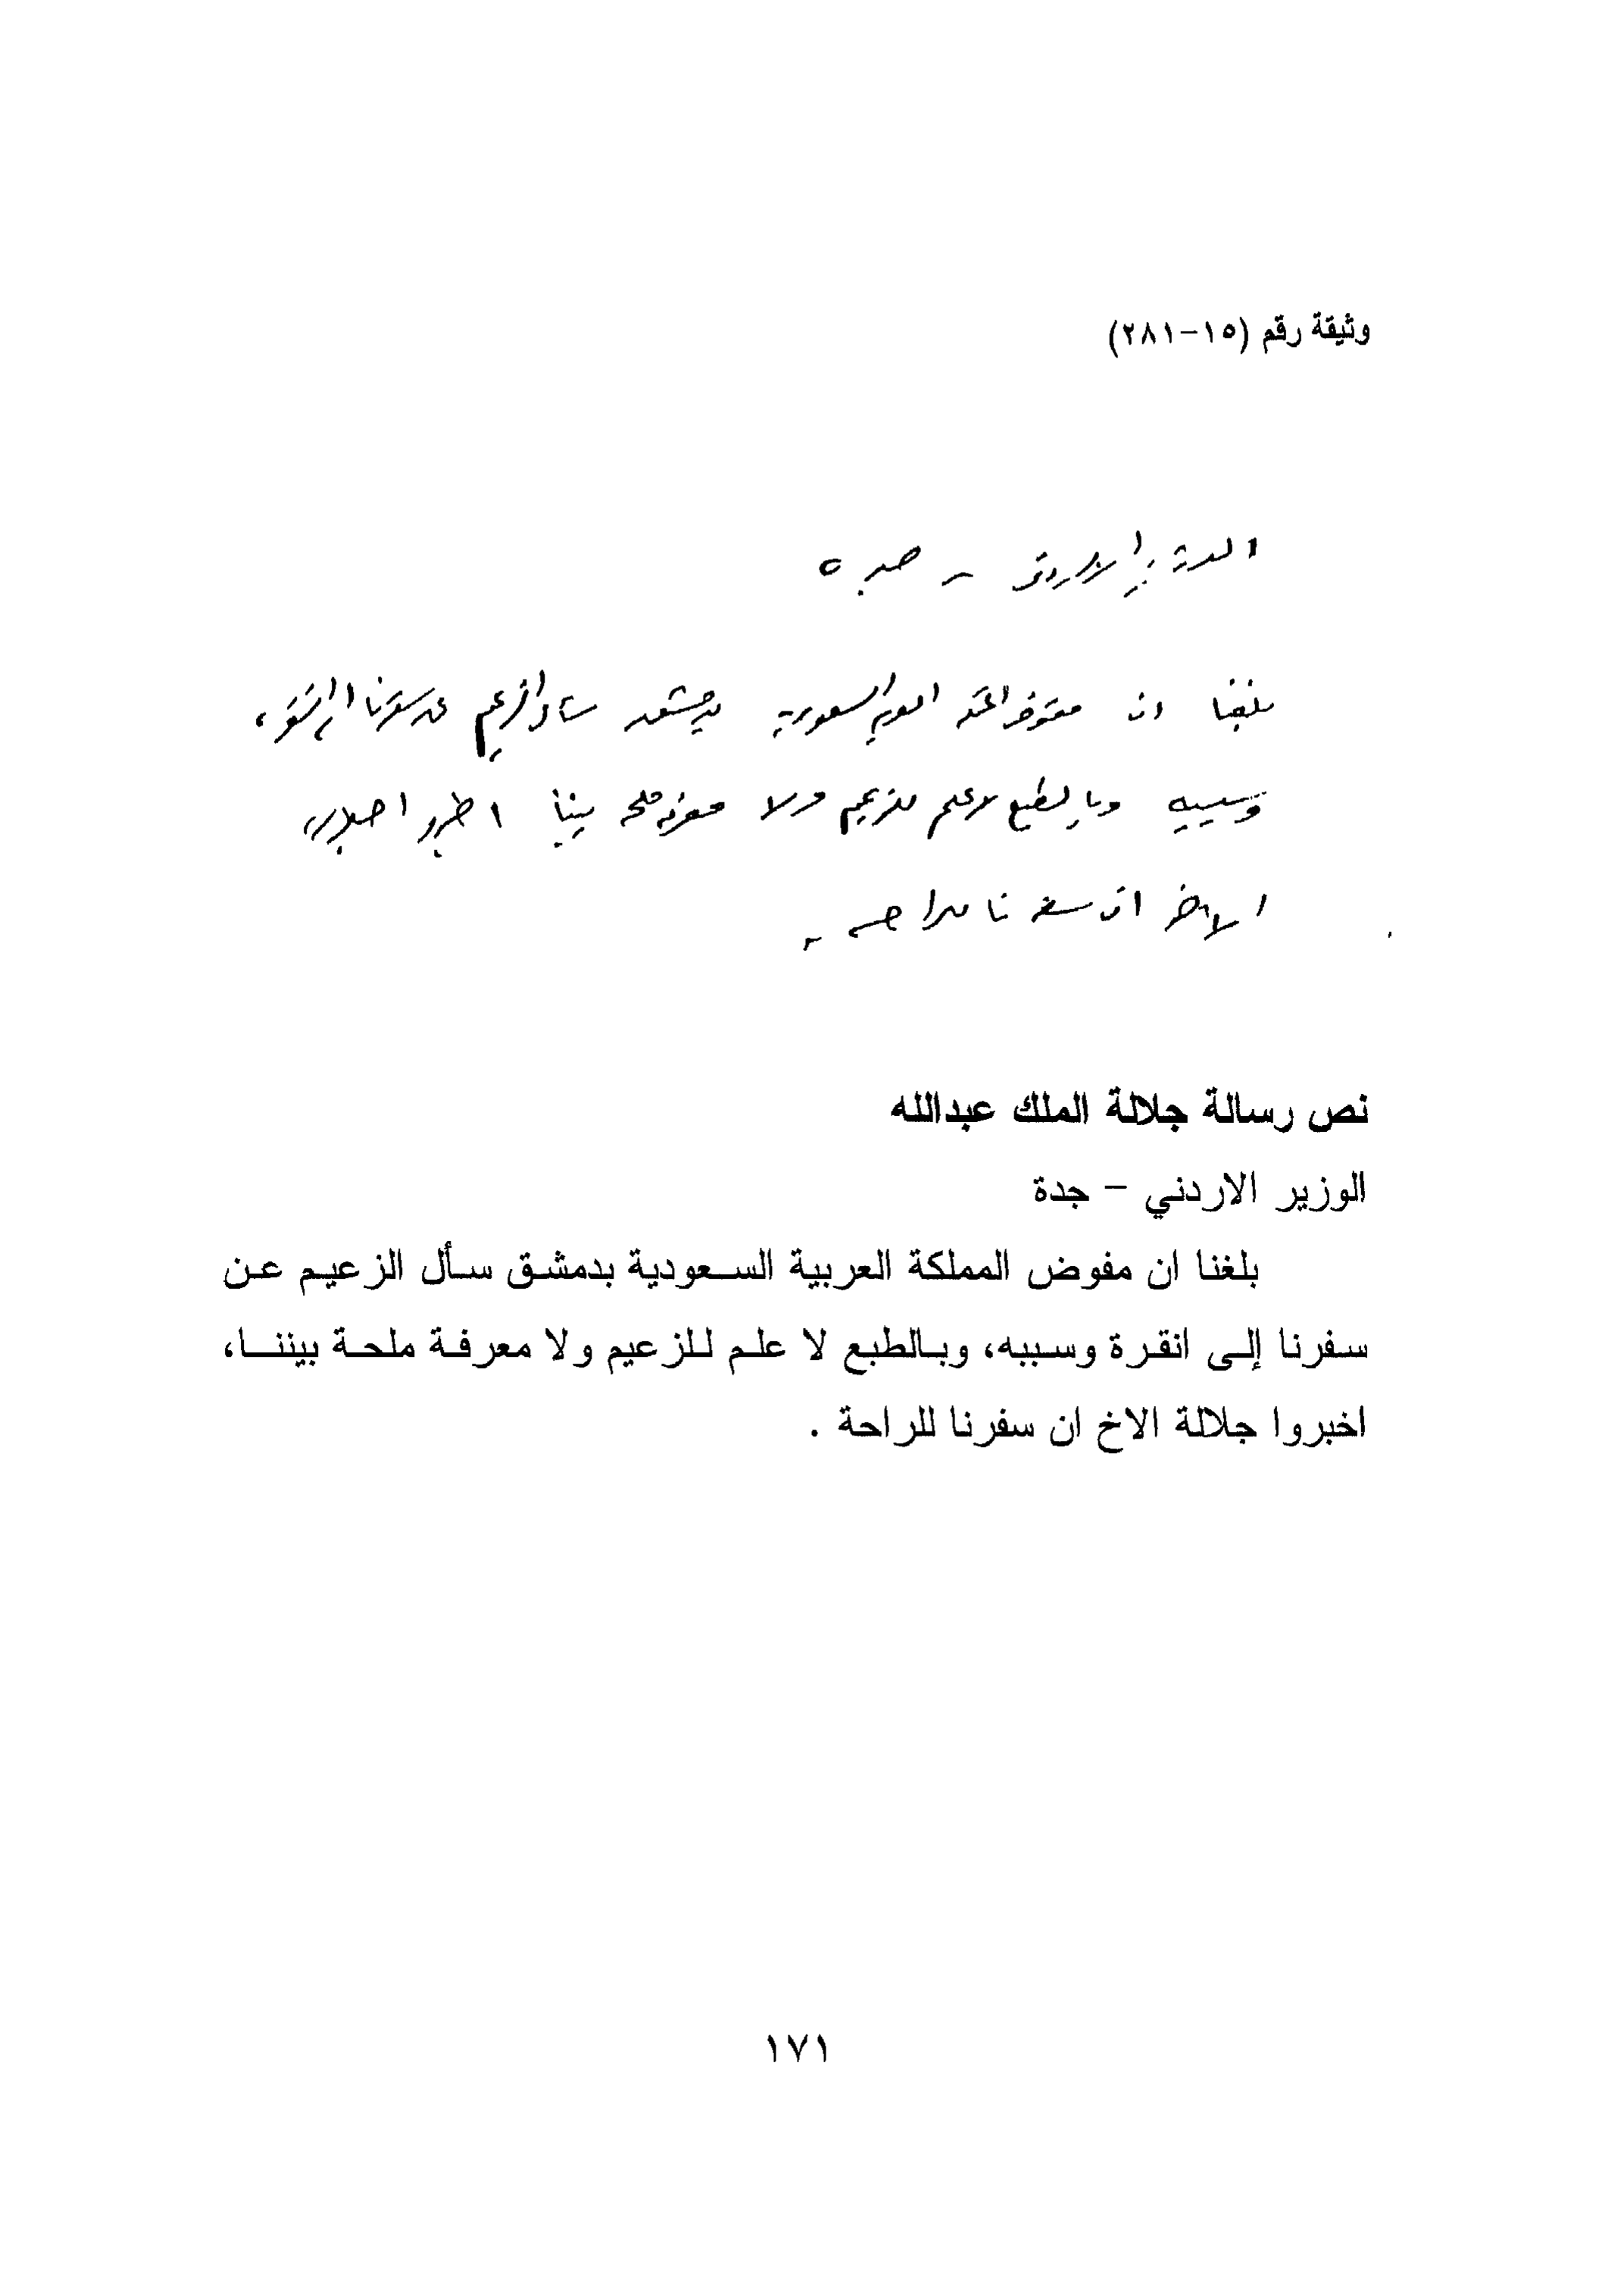 وثيقة رقم (١٥-٢٨١)
الوزير الاردني - جدة
بلغنا ان مفوض المملكة العربية السعودية بدمشق سأل الزعيم عن سفرنا الى انقرة،
وسببه وبالطبع لا علم للزعيم ولا معرفة ملحة بيننا اخبروا جلالة
الاخ ان سفرنا للراحة -
نص رسالة جلالة الملك عبدالله
الوزير الاردني - جدة
بلغنا ان مفوض المملكة العربية السعودية بدمشق سأل الزعيم عن
سفرنا إلى انقرة وسببه، وبالطبع لا علم للزعيم ولا معرفة ملحة بيننا،
اخبروا جلالة الاخ ان سفرنا للراحة .
١٧١